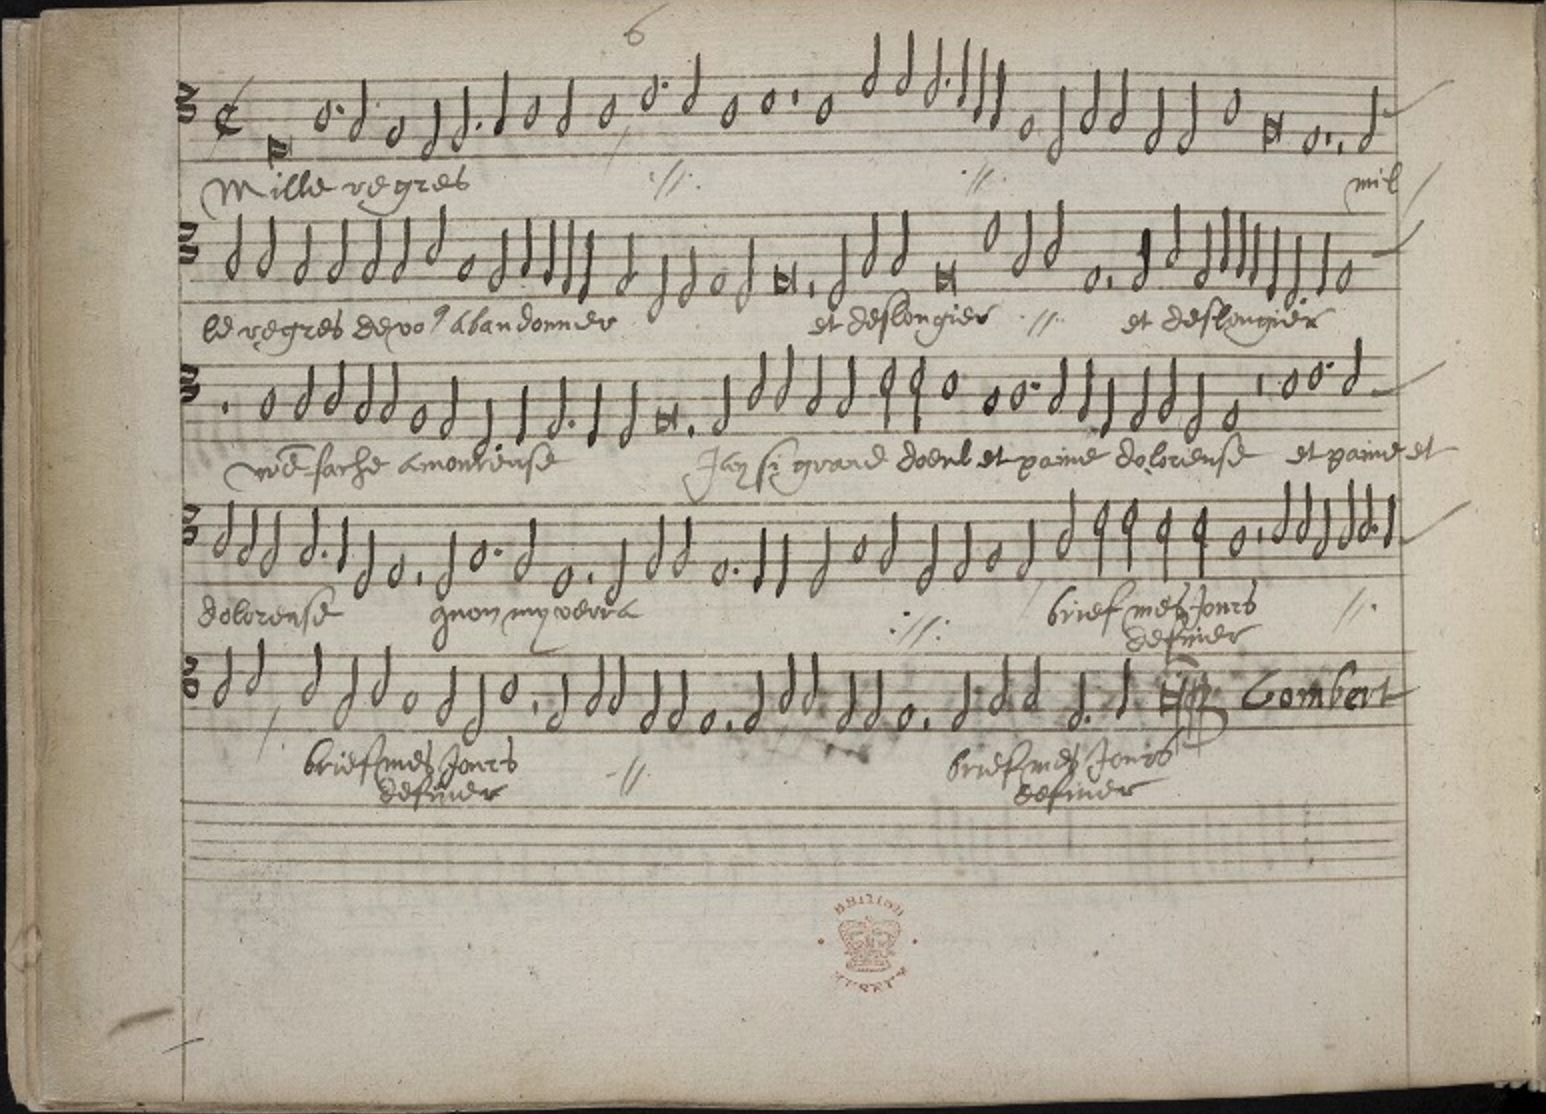 6
Mille regres :||: :||: mil
le regres de vo⁹ abandonner et deslongier :||: et deslongier
vrē fache amoureuse Jay si grand doeul et paine doloreuse et paine et
dolereuse quon my verra :||: brief mes Jours definer ||:
Gombert
brief mes Jours definer :||: brief mes Jours definer
BRITISH
MUSEUM